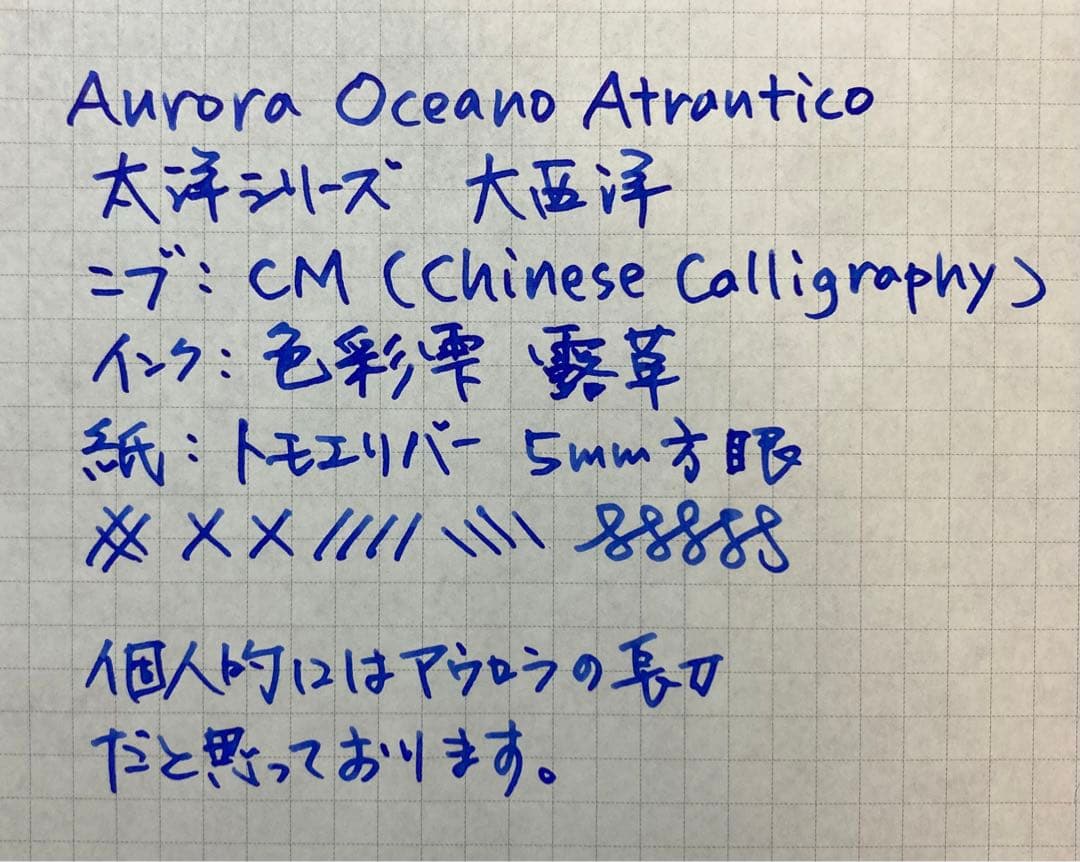 Aurora Oceano Atrantico
太洋シリーズ 大西洋
ニブ: CM (Chinese Calligraphy)
インク: 色彩雫 露草
紙: トモエリバー 5mm方眼
個人的にはアウロラの長刀
だと思っております。